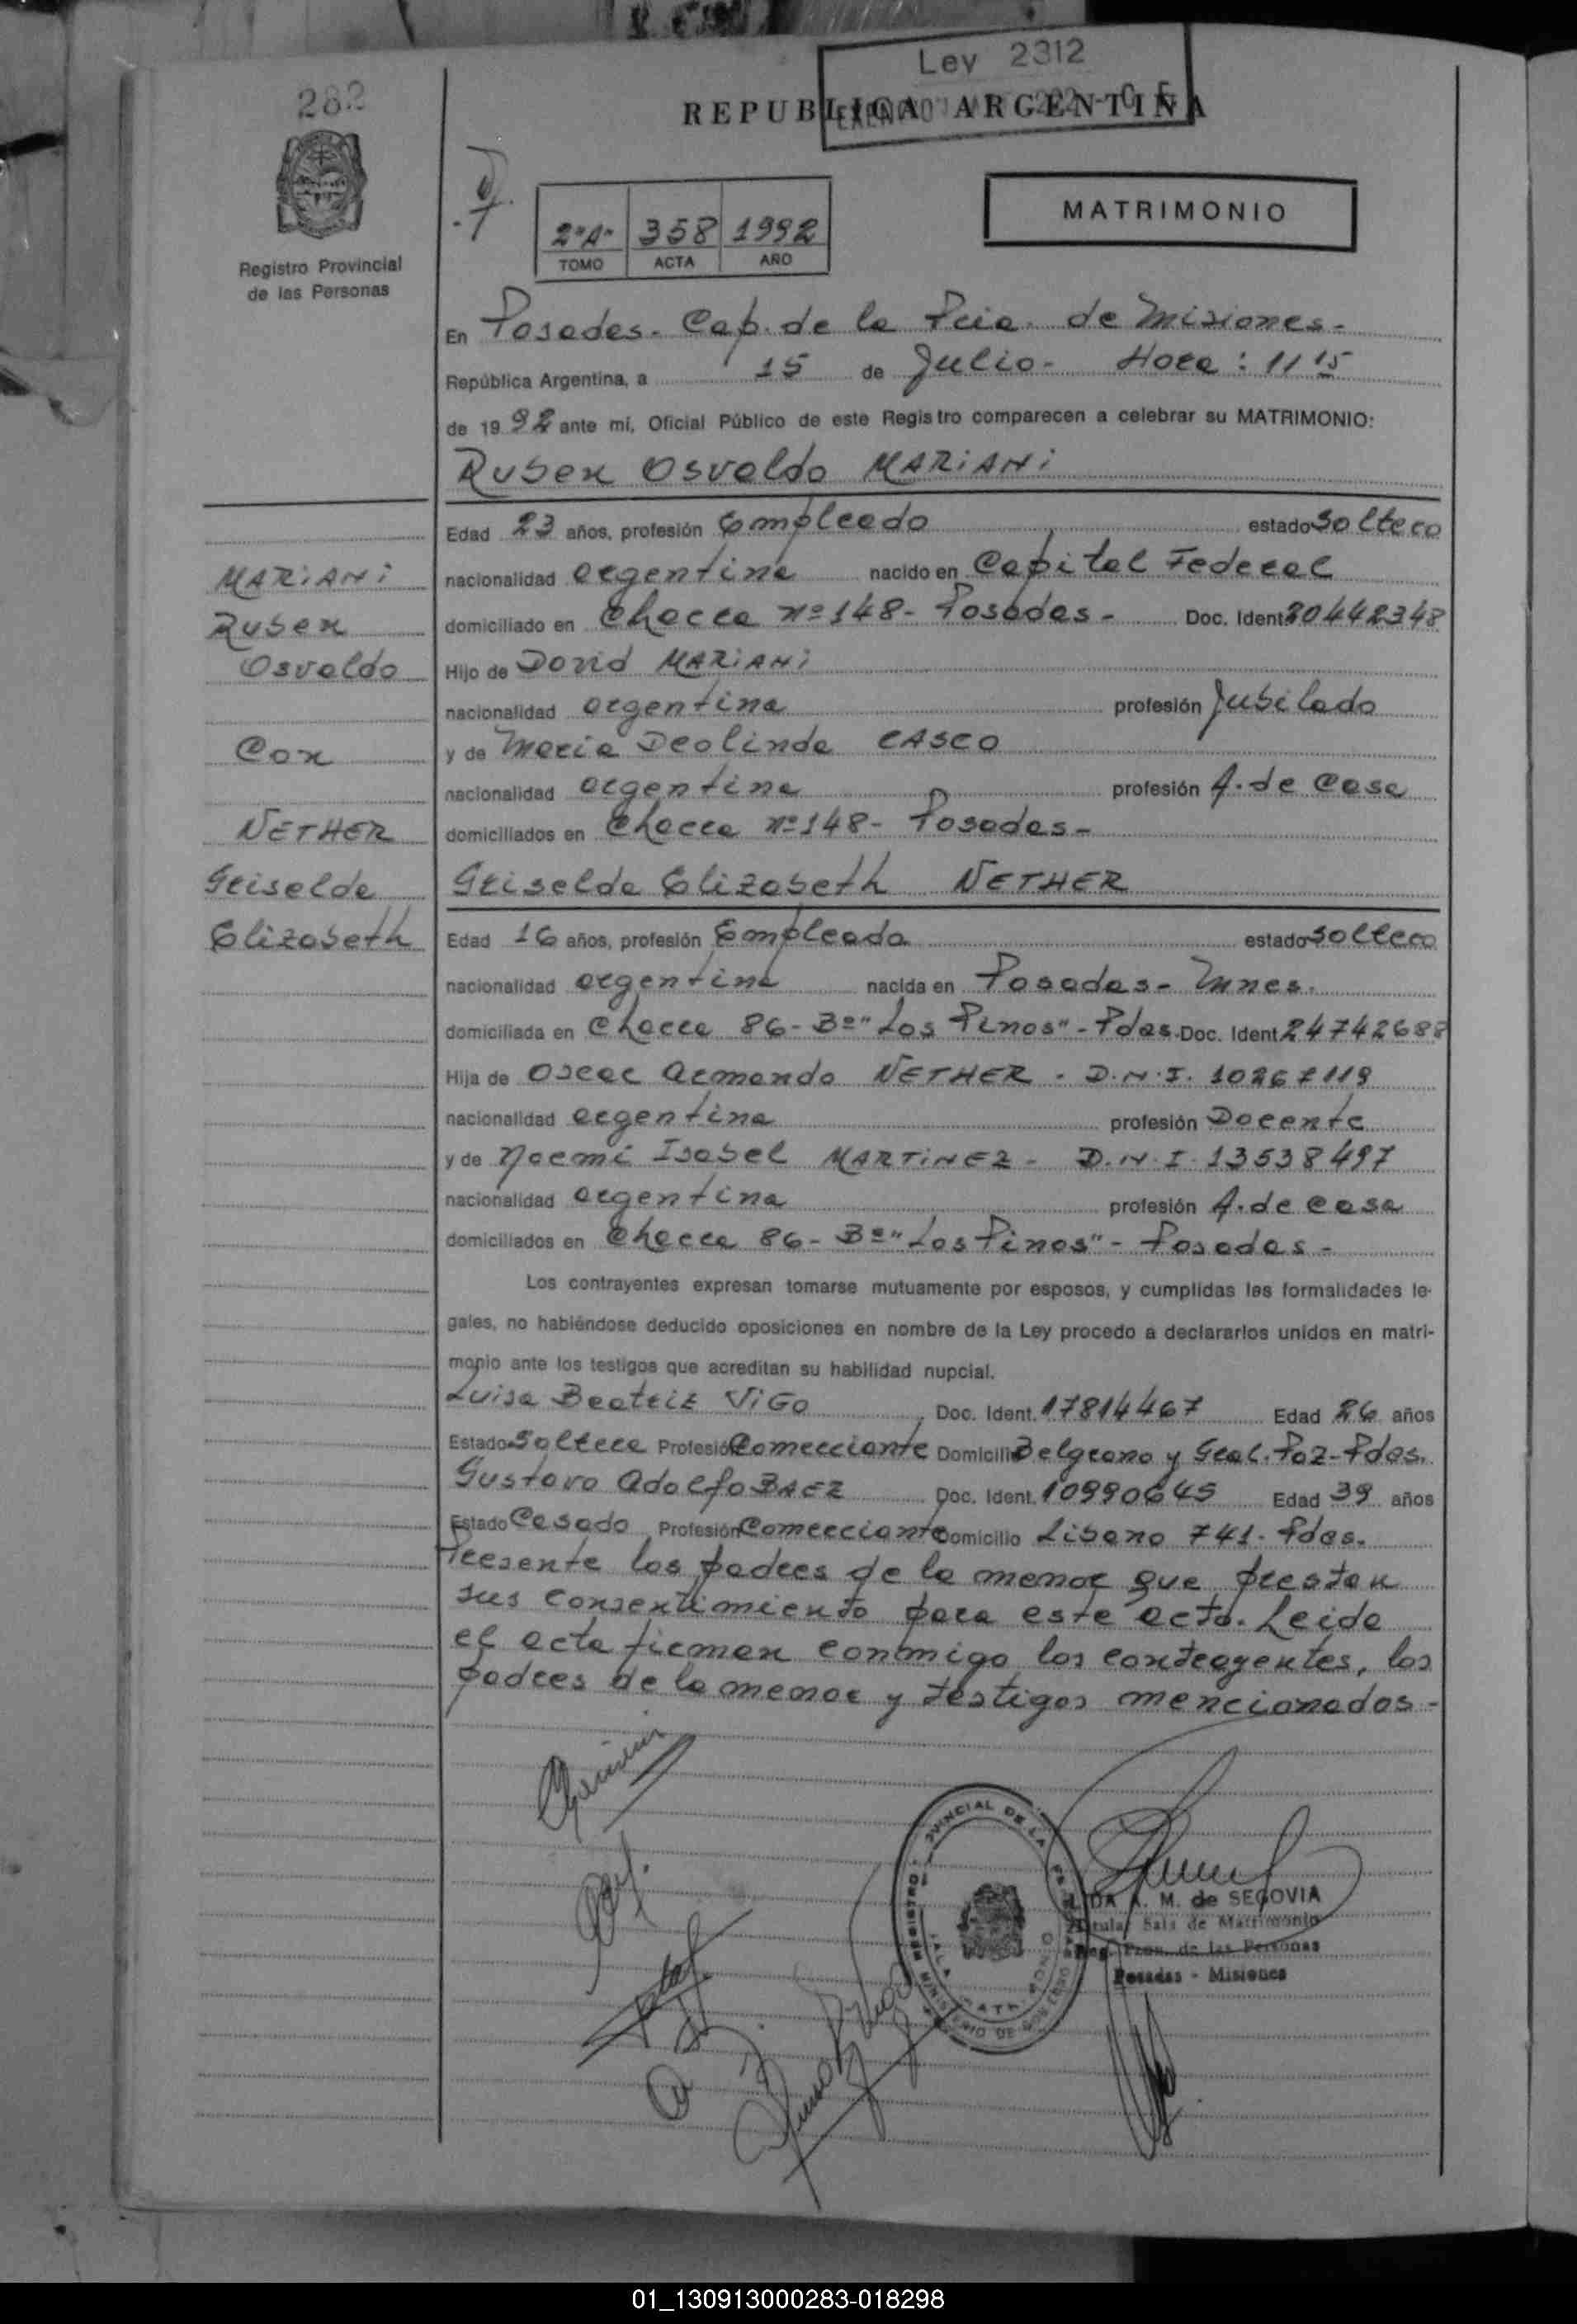 Ley 2312
282
REPUBLICA ARGENTINA
MATRIMONIO
2"A" 358 1992
TOMO ACTA AÑO
Registro Provincial
de las Personas
En Posadas - Cap. de la Pcia. de Misiones -
República Argentina, a 15 de Julio - Hora : 11 15
de 19 92 ante mí, Oficial Público de este Registro comparecen a celebrar su MATRIMONIO:
Ruben Osvaldo MARIANI
Edad 23 años, profesión Empleado estado soltero
MARIANI
nacionalidad argentina nacido en Capital Federal
Ruben
domiciliado en Chacra nº 148 - Posadas - Doc. Ident 20442348
Osvaldo
Hijo de David MARIANI
nacionalidad argentina profesión Jubilado
Con
y de Maria Deolinda CASCO
nacionalidad argentina profesión A. de Casa
NETHER
domiciliados en Chacra nº 148 - Posadas -
Griselda
Griselda Elizabeth NETHER
Elizabeth
Edad 16 años, profesión Empleada estado soltera
nacionalidad argentina nacida en Posadas - Mnes.
domiciliada en Chacra 86 - Bº "Los Pinos" - Pdas. Doc. Ident 24742688
Hija de Oscar Armando NETHER - D.N.I. 10267119
nacionalidad argentina profesión Docente
y de Noemi Isabel MARTINEZ - D.N.I. 13538497
nacionalidad argentina profesión A. de casa
domiciliados en Chacra 86 - Bº "Los Pinos" - Posadas -
Los contrayentes expresan tomarse mutuamente por esposos, y cumplidas las formalidades le-
gales, no habiéndose deducido oposiciones en nombre de la Ley procedo a declararlos unidos en matri-
monio ante los testigos que acreditan su habilidad nupcial.
Luisa Beatriz VIGO Doc. Ident. 17814467 Edad 26 años
Estado Soltera Profesión Comerciante Domicilio Belgrano y Gral. Paz - Pdas.
Gustavo Adolfo BAEZ Doc. Ident. 10990645 Edad 39 años
Estado Casado Profesión Comerciante Domicilio Libano 741 - Pdas.
Presente los padres de la menor que prestan
sus consentimiento para este acto. Leida
el acta firman conmigo los contrayentes, los
padres de la menor y testigos mencionados -
A. M. de SEGOVIA
Titular Sala de Matrimonio
Reg. Prov. de las Personas
Posadas - Misiones
01_130913000283-018298